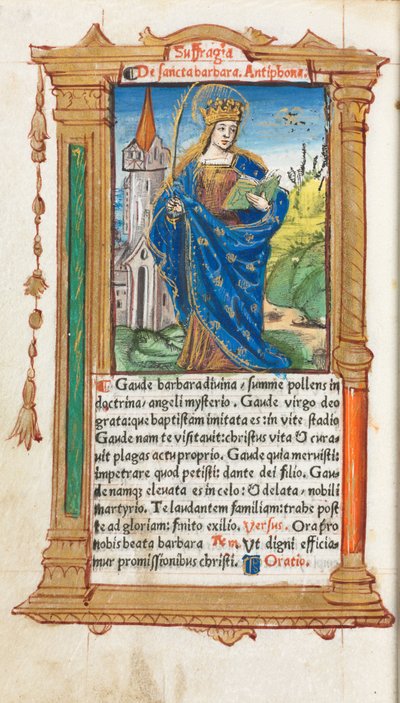 Suffragia
De sancta barbara. Antiphona.
Gaude barbara diuina / summe pollens in
doctrina / angeli mysterio. Gaude virgo deo
grata: que baptistam imitata es: in vite stadio
Gaude nam te visitauit: christus vita & cura-
uit plagas actu proprio. Gaude quia meruisti:
impetrare quod petisti: dante dei filio. Gau-
de namqȝ eleuata es in celo: & delata / nobili
martyrio. Te laudantem familiam: trahe post
te ad gloriam: finito exilio. Versus. Ora pro
nobis beata barbara Rem. Vt digni efficia-
mur promissionibus christi. Oratio.